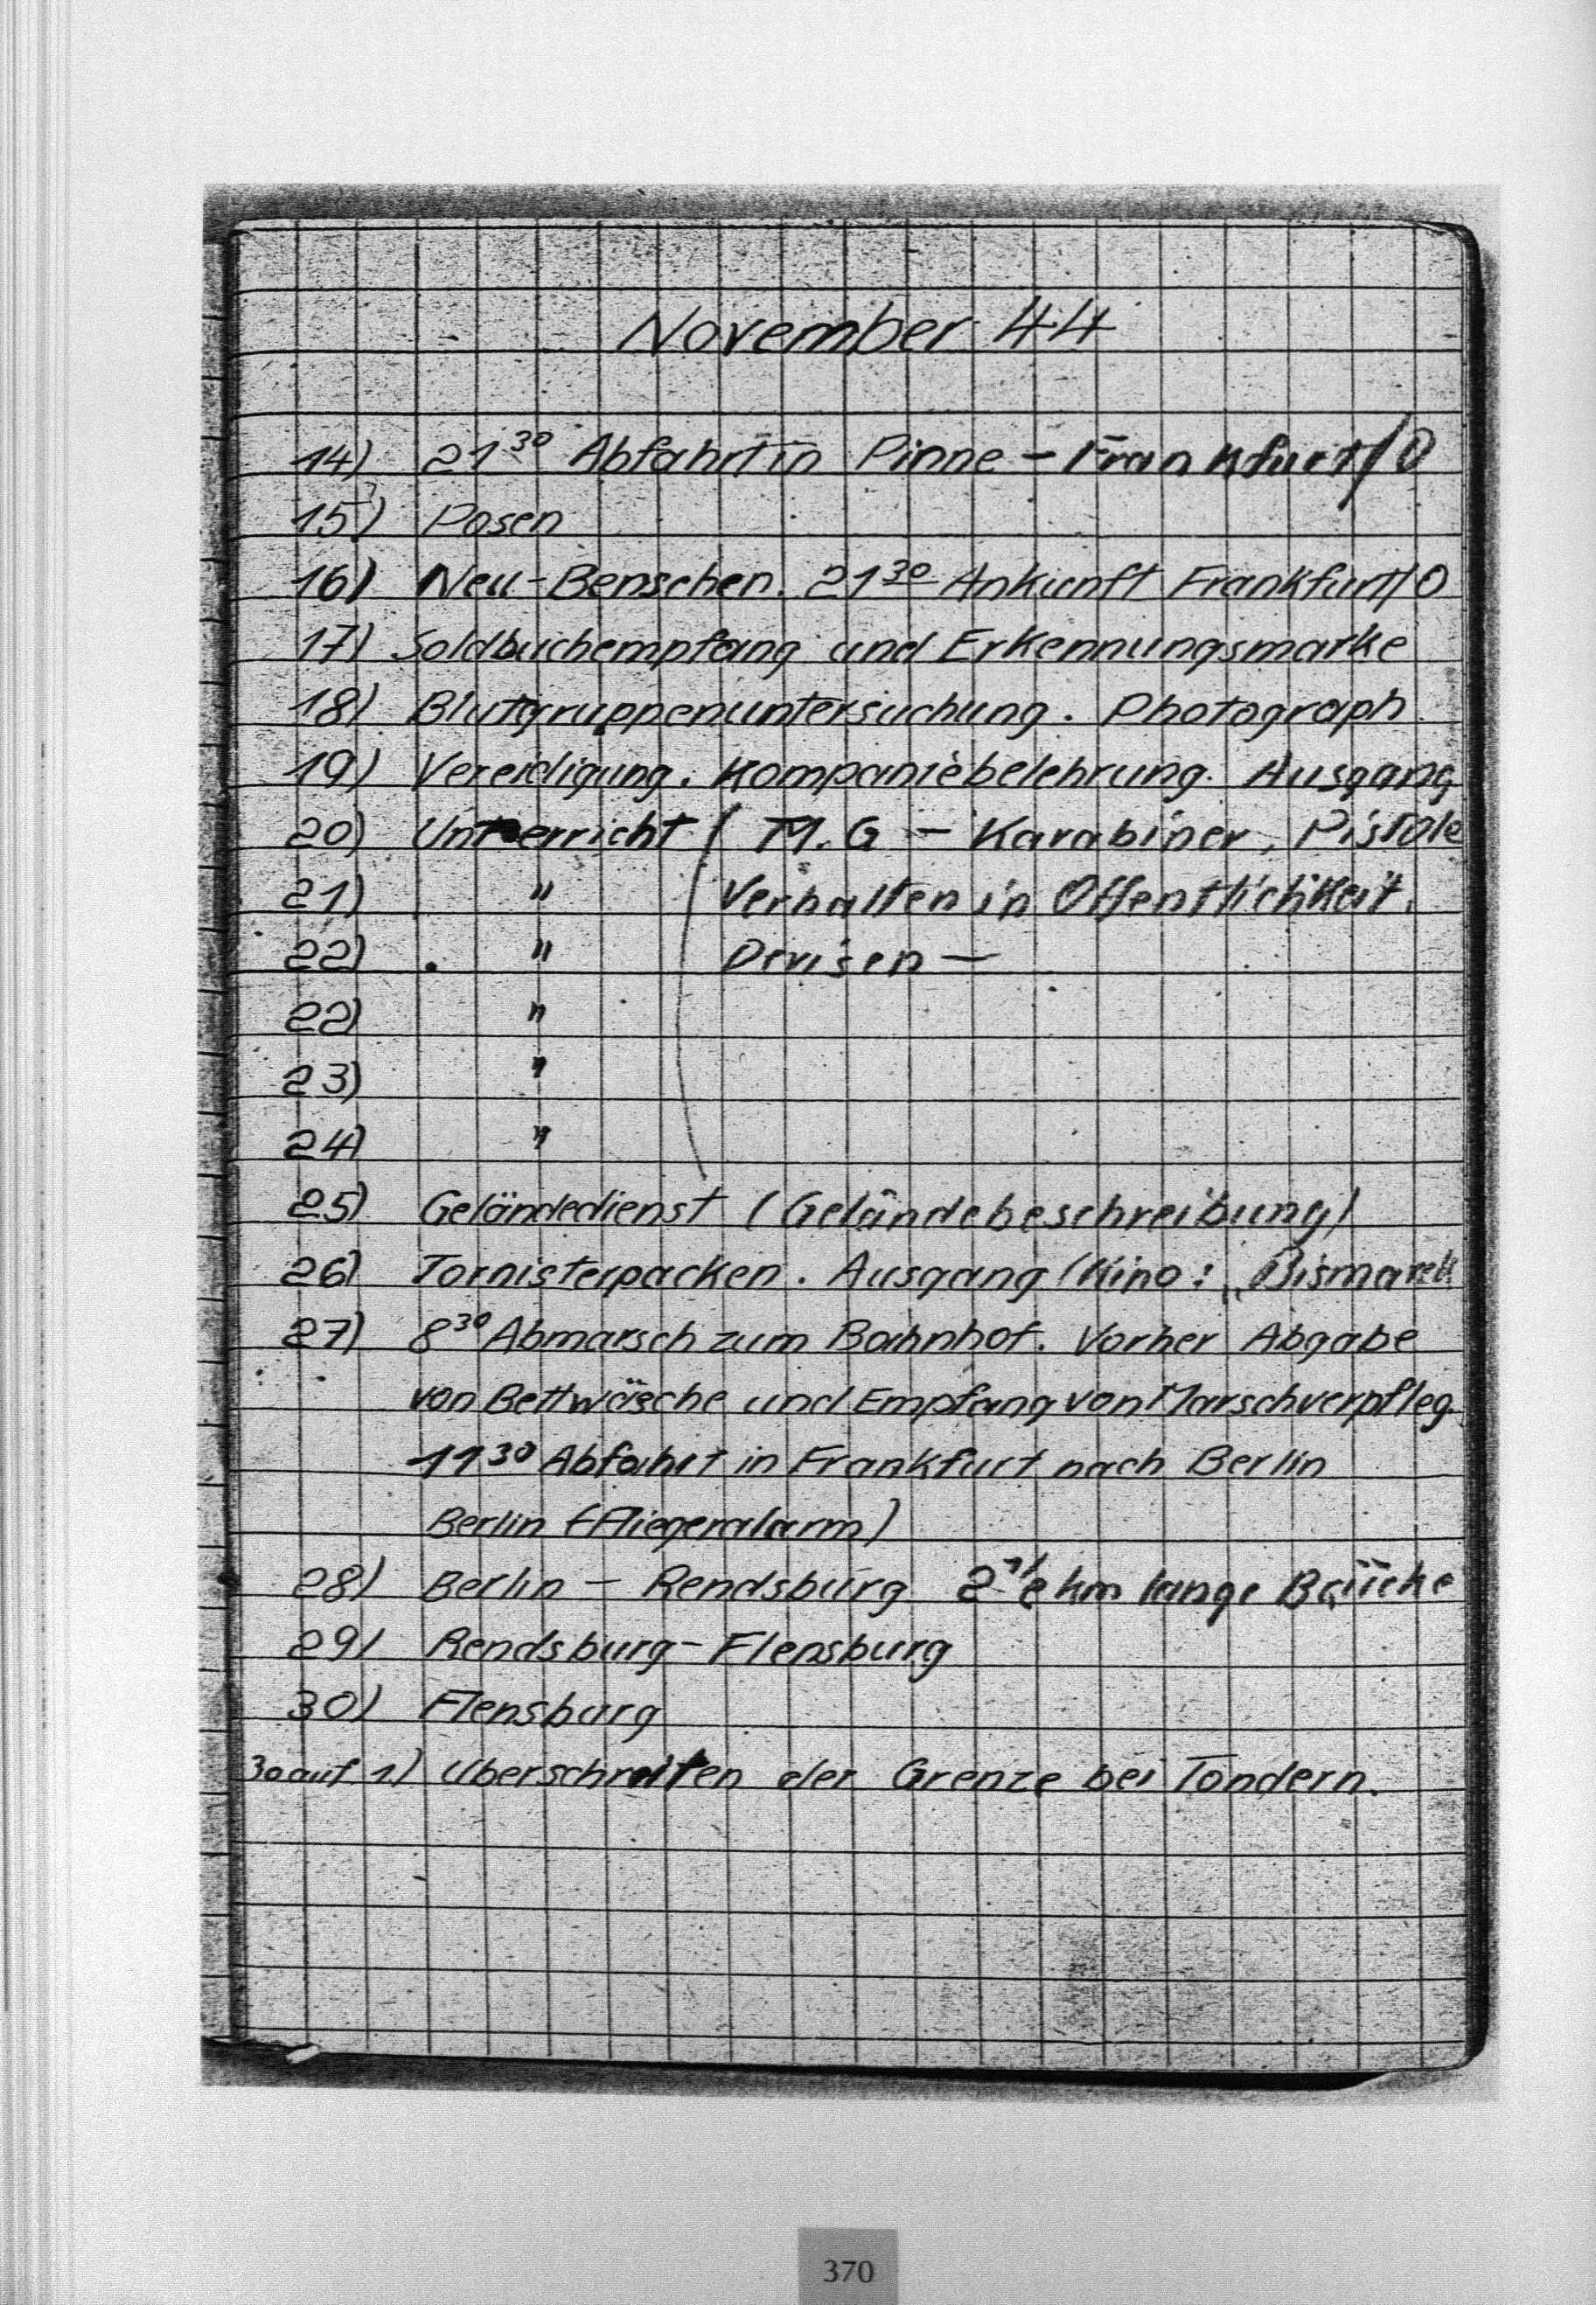 November 44
14) 21³⁰ Abfahrt in Pinne – Frankfurt/O
15) Posen
16) Neu-Benschen. 21³⁰ Ankunft Frankfurt/O
17) Soldbuchempfang und Erkennungsmarke
18) Blutgruppenuntersuchung. Photograph
19) Vereidigung. Kompaniebelehrung. Ausgang
20) Unterricht ( M.G – Karabiner, Pistole
21) " Verhalten in Öffentlichkeit.
22) " Devisen —
22) "
23) "
24) "
25) Geländedienst (Geländebeschreibung)
26) Tornisterpacken. Ausgang (Kino: „Bismarck
27) 8³⁰ Abmarsch zum Bahnhof. Vorher Abgabe
von Bettwäsche und Empfang von Marschverpfleg.
11³⁰ Abfahrt in Frankfurt nach Berlin
Berlin (Fliegeralarm)
28) Berlin – Rendsburg 2 1/2 km lange Brücke
29) Rendsburg – Flensburg
30) Flensburg
30 auf 1) Überschreiten der Grenze bei Tondern.
370